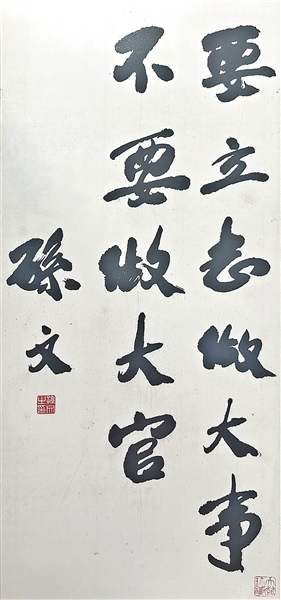 要立志做大事
不要做大官
孫文